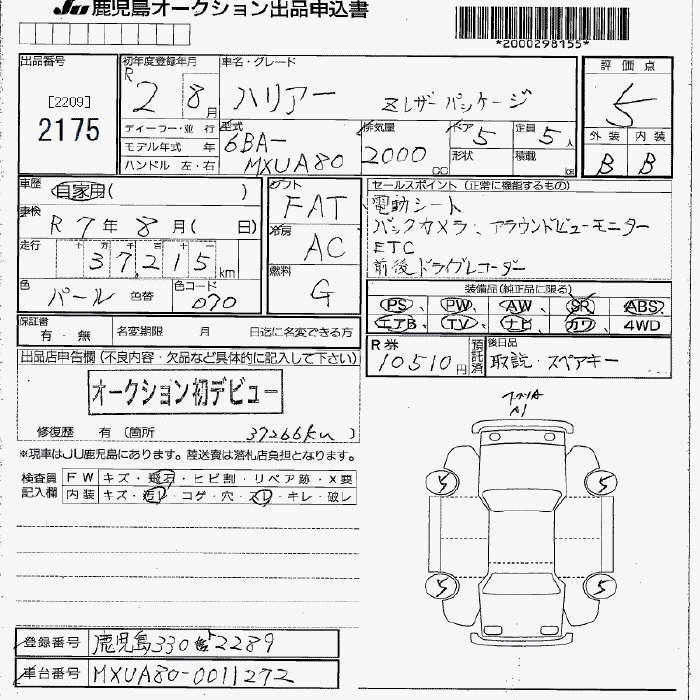 JU 鹿児島オークション出品申込書
*2000298155*
出品番号
[2209]
2175
初年度登録年月
R 2 8月
車名・グレード
ハリアー Zレザーパッケージ
評価点
5
外装 内装
B B
ディーラー・並行
モデル年式 年
ハンドル 左・右
型式
6BA-
MXUA80
排気量
2000 cc
ドア 5
形状
定員 5人
積載 kg
車歴
自家用( )
車検
R 7年 8月( 日)
走行
十 万 千 百 十 一
37,215 km
色
パール 色替
色コード
070
シフト
FAT
冷房
AC
燃料
G
セールスポイント (正常に機能するもの)
電動シート
バックカメラ、アラウンドビューモニター
ETC
前後ドライブレコーダー
装備品(純正品に限る)
PS PW AW SR ABS
エアB TV ナビ カワ 4WD
保証書
有・無
名変期限 月 日迄に名変できる方
R券
10510円
預託済
後日品
取説・スペアキー
出品店申告欄 (不良内容・欠品など具体的に記入して下さい)
オークション初デビュー
修復歴 有 〔箇所 37266km 〕
※現車はJU鹿児島にあります。陸送費は落札店負担となります。
検査員
記入欄
FW キズ・飛石・ヒビ割・リペア跡・X要
内装 キズ・汚レ・コゲ・穴・スレ・キレ・破レ
5 5
5 5
登録番号 鹿児島330 2289
車台番号 MXUA80-0011272